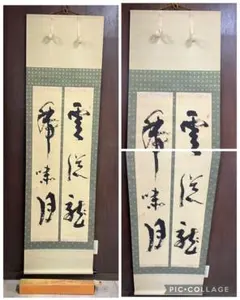 雲從龍
虎嘯月
雲從龍
虎嘯月
PIC•COLLAGE